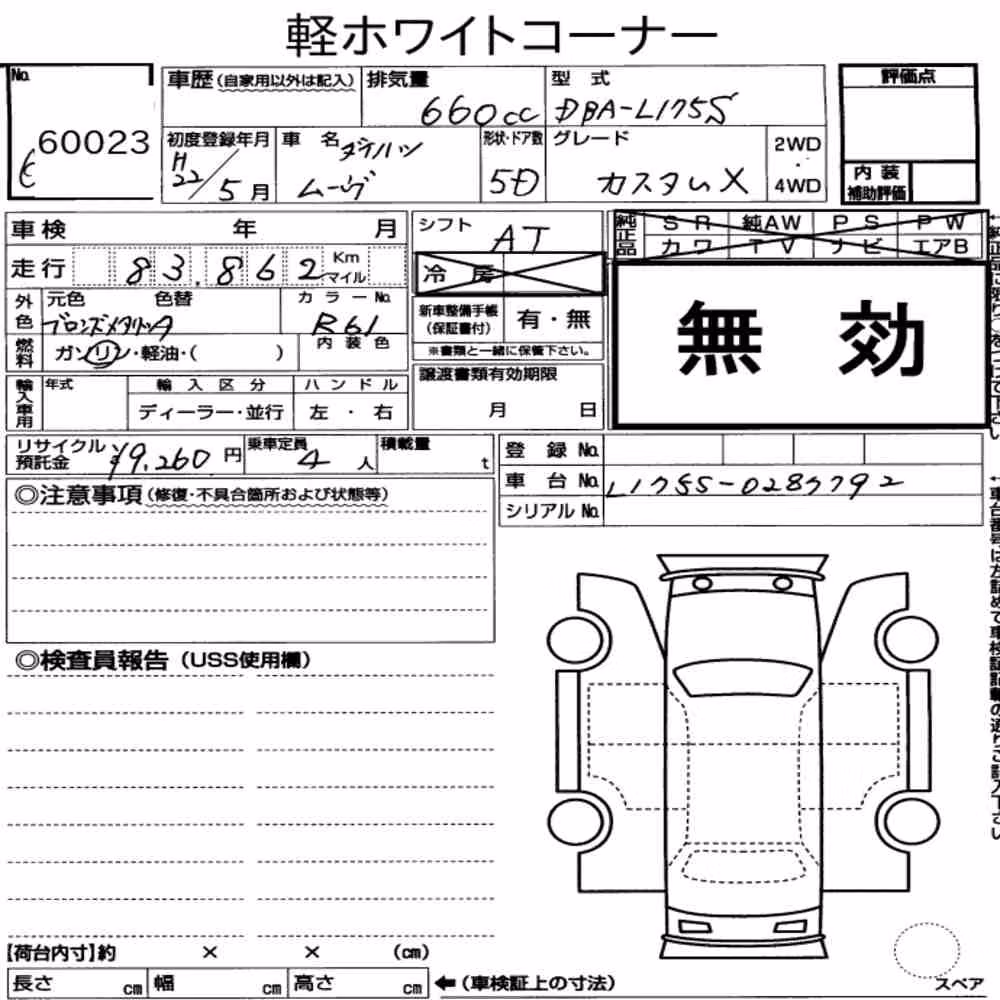 軽ホワイトコーナー
No. 60023
車歴(自家用以外は記入) 排気量 660cc 型式 DBA-L175S 評価点
初度登録年月 H22/5月 車名 ダイハツ ムーヴ 形状・ドア数 5D グレード カスタムX 2WD・4WD 内装補助評価
車検 年 月 シフト AT 純正品 SR 純AW PS PW
カワ TV ナビ エアB
走行 83.862 Km マイル 冷房
外色 元色 ブロンズメタリック 色替 カラーNo. R61 新車整備手帳(保証書付) 有・無
無効
燃料 ガソリン・軽油・( ) 内装色 ※書類と一緒に保管下さい。
輸入車用 年式 輸入区分 ディーラー・並行 ハンドル 左・右 譲渡書類有効期限 月 日
リサイクル預託金 ¥9.260円 乗車定員 4人 積載量 t 登録No.
車台No. L175S-0287792
シリアルNo.
◎注意事項(修復・不具合箇所および状態等)
◎検査員報告(USS使用欄)
【荷台内寸】約 × × (cm)
長さ cm 幅 cm 高さ cm ←(車検証上の寸法)
スペア